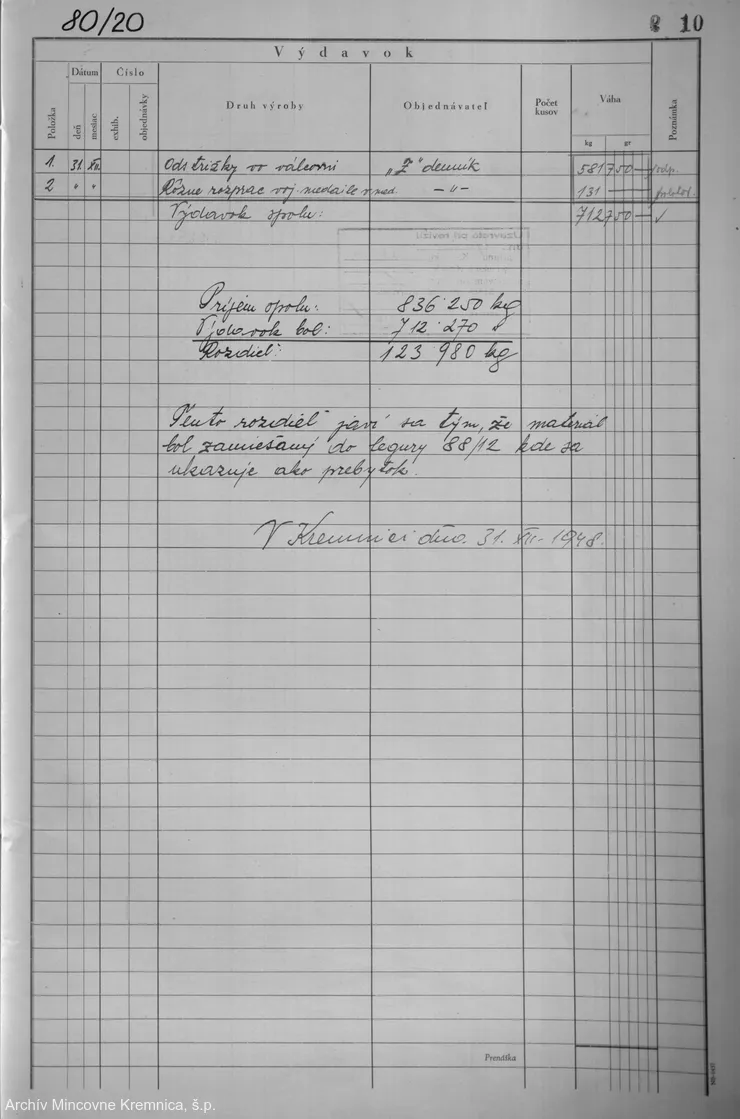 80/20
10
Výdavok
Položka
Dátum
deň
mesiac
Číslo
exhib.
objednávky
Druh výroby
Objednávateľ
Počet kusov
Váha
kg
gr
Poznámka
1. 31. XII. Odstrižky vo válcovni „Z" denník 581 750 — odp.
2 " " Rôzne rozprac voj medaile v med. — " — 131 —
Výdavok spolu: 712 750 — ✓
Príjem spolu: 836 250 kg
Výdavok bol: 712 270 "
Rozdiel: 123 980 kg
Tento rozdiel javí sa tým, že materiál
bol zamiešaný do legury 88/12 kde sa
ukazuje ako prebytok.
V Kremnici dňa. 31. XII. 1948.
Prenáška
Archív Mincovne Kremnica, š.p.